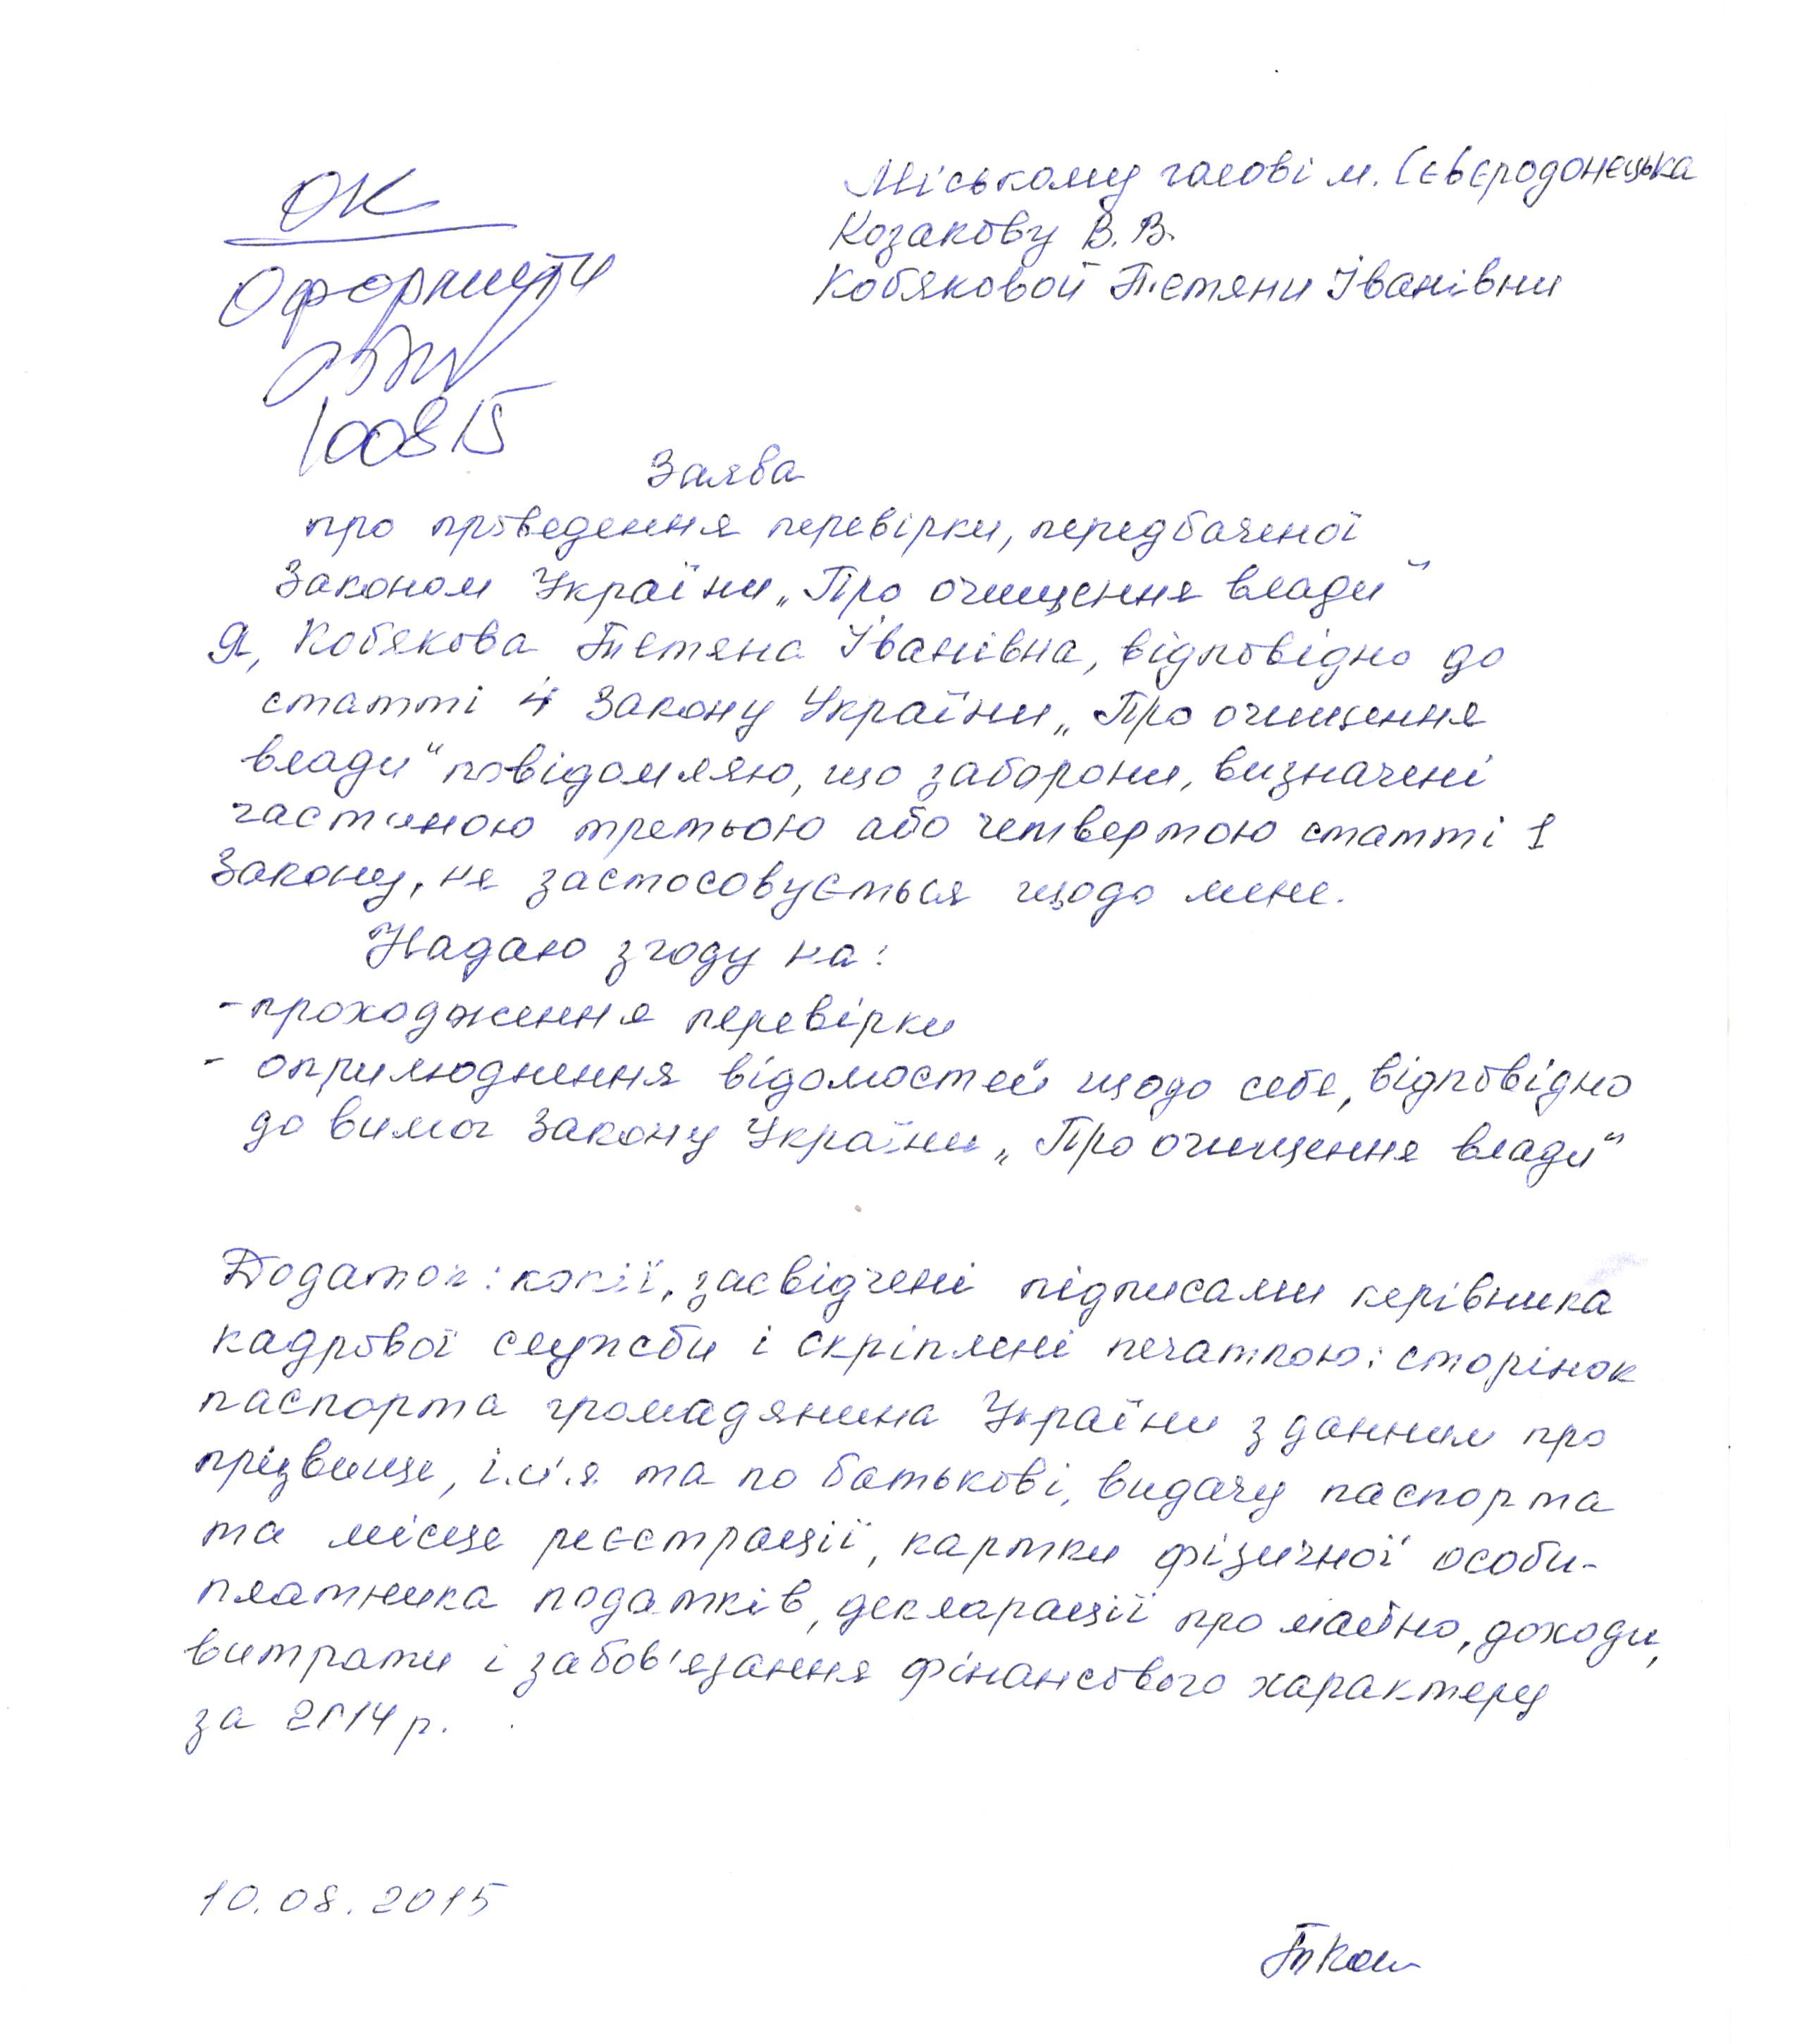 ОК
Оформити
100815
Міському голові м. Сєвєродонецька
Козакову В. В.
Кобяковой Тетяни Іванівни
Заява
про проведення перевірки, передбаченої
Законом України „Про очищення влади"
Я, Кобякова Тетяна Іванівна, відповідно до
статті 4 Закону України „Про очищення
влади" повідомляю, що заборони, визначені
частиною третьою або четвертою статті 1
Закону, не застосовується щодо мене.
Надаю згоду на:
- проходження перевірки
- оприлюднення відомостей щодо себе, відповідно
до вимог Закону України „Про очищення влади"
Додаток: копії, засвідчені підписами керівника
кадрової служби і скріплені печаткою: сторінок
паспорта громадянина України з данним про
прізвище, ім'я та по батькові, видачу паспорта
та місце реєстрації, картки фізичної особи-
платника податків, декларації про майно, доходи,
витрати і забов'язання фінансового характеру
за 2014 р.
10.08.2015